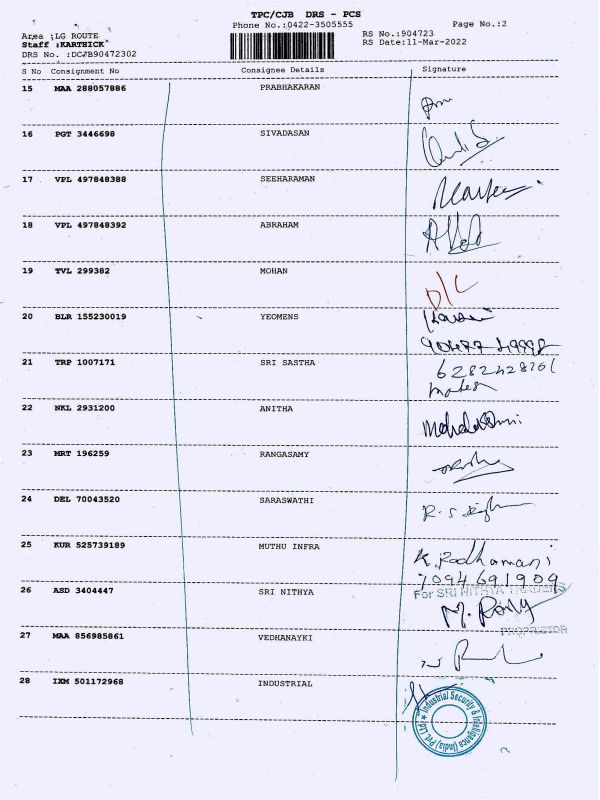 TPC/CJB DRS - PCS
Phone No.:0422-3505555 Page No.:2
Area :LG ROUTE RS No.:904723
Staff :KARTHICK RS Date:11-Mar-2022
DRS No. :DCJB90472302
S No Consignment No Consignee Details Signature
15 MAA 288057886 PRABHAKARAN
16 PGT 3446698 SIVADASAN
17 VPL 497848388 SEEHARAMAN
18 VPL 497848392 ABRAHAM
19 TVL 299382 MOHAN D/C
20 BLR 155230019 YEOMENS
21 TRP 1007171 SRI SASTHA
22 NKL 2931200 ANITHA
23 MRT 196259 RANGASAMY
24 DEL 70043520 SARASWATHI
25 KUR 525739189 MUTHU INFRA K. Radhamani
7094691909
For SRI NITHYA TRADERS
26 ASD 3404447 SRI NITHYA
PROPRIETOR
27 MAA 856985861 VEDHANAYKI
28 IXM 501172968 INDUSTRIAL
Industrial Security & Intelligence (India) Pvt. Ltd.